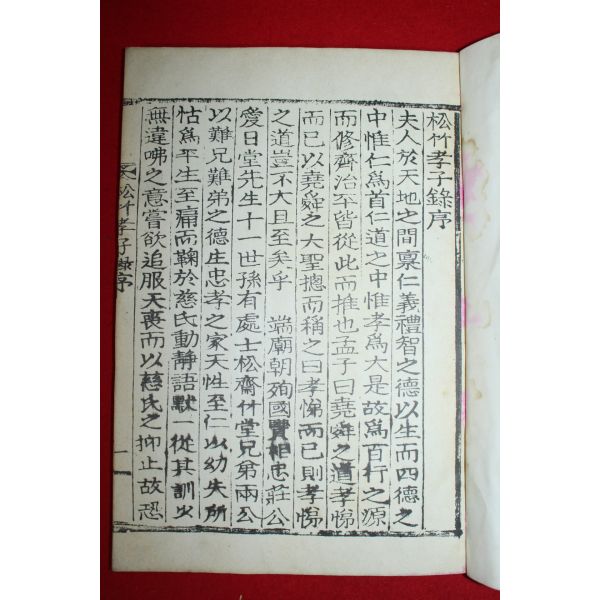 松竹孝子錄序
夫人於天地之間禀仁義禮智之德以生而四德之
中惟仁爲首仁道之中惟孝爲大是故爲百行之源
而修齊治平皆從此而推也孟子曰堯舜之道孝悌
而已以堯舜之大聖摠而稱之曰孝悌而已則孝悌
之道豈不大且至矣乎 端廟朝殉國賢相忠莊公
愛日堂先生十一世孫有處士松齋竹堂兄弟兩公
以難兄難弟之德庄忠孝之家天性至仁以幼失所
怙爲平生至痛而鞠於慈氏動靜語默一從其訓少
無違咈之意嘗欲追服天喪而以慈氏之抑止故恐
松竹孝子錄序
一